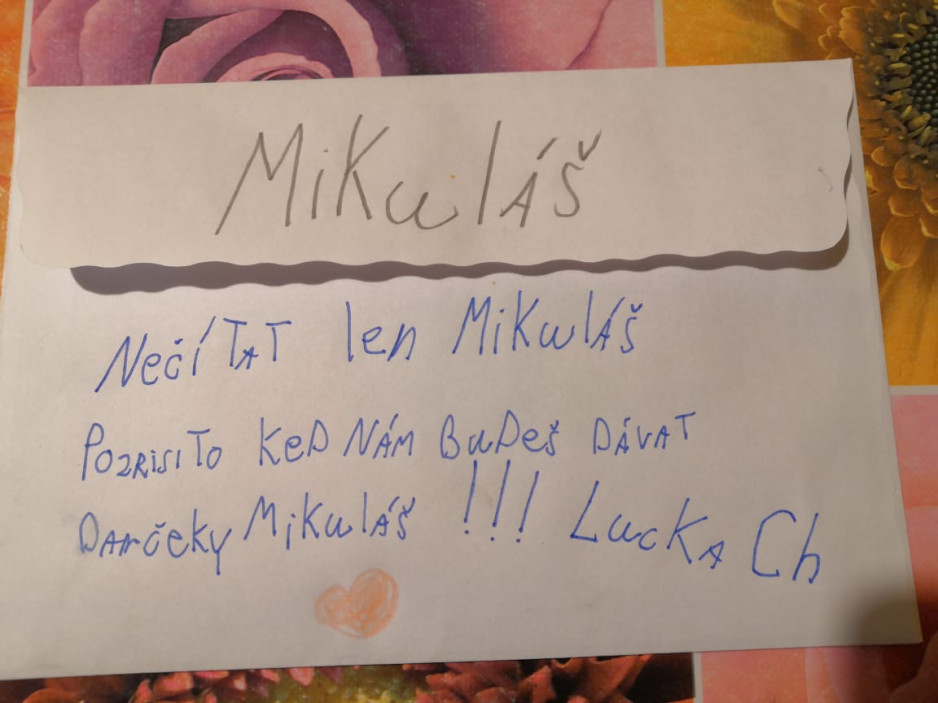 MiKuláš
NečíTAT len MiKuláŠ
POZRISITO KeD NÁM BuDeš DÁVAT
DArčeky MiKuláš !!! LucKA Ch